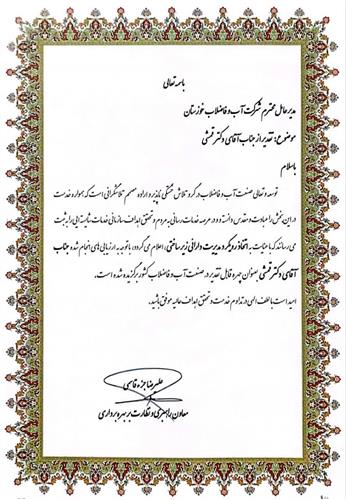 باسمه تعالی
مدیرعامل محترم شرکت آب و فاضلاب خوزستان
موضوع: تقدیر از جناب آقای دکتر قمشی
با سلام
توسعه و تعالی صنعت آب و فاضلاب در گرو تلاش خستگی ناپذیر و اراده مصمم تلاشگرانی است که همواره خدمت
در این بخش را عبادت و مقدس دانسته و در عرصه خدمات رسانی به مردم و تحقق اهداف سازمانی خدمات شایسته ای را به ثبت
می رسانند که با عنایت به اتخاذ رویکرد مدیریت دارائی زیرساختی، اعلام می گردد، با توجه به ارزیابی های انجام شده جناب
آقای دکتر قمشی بعنوان چهره قابل تقدیر در صنعت آب و فاضلاب کشور برگزیده شده است.
امید است با لطف الهی در تداوم خدمت و تحقق اهداف عالیه موفق باشید.
علیرضا جزء قاسمی
معاون راهبری و نظارت بر بهره برداری